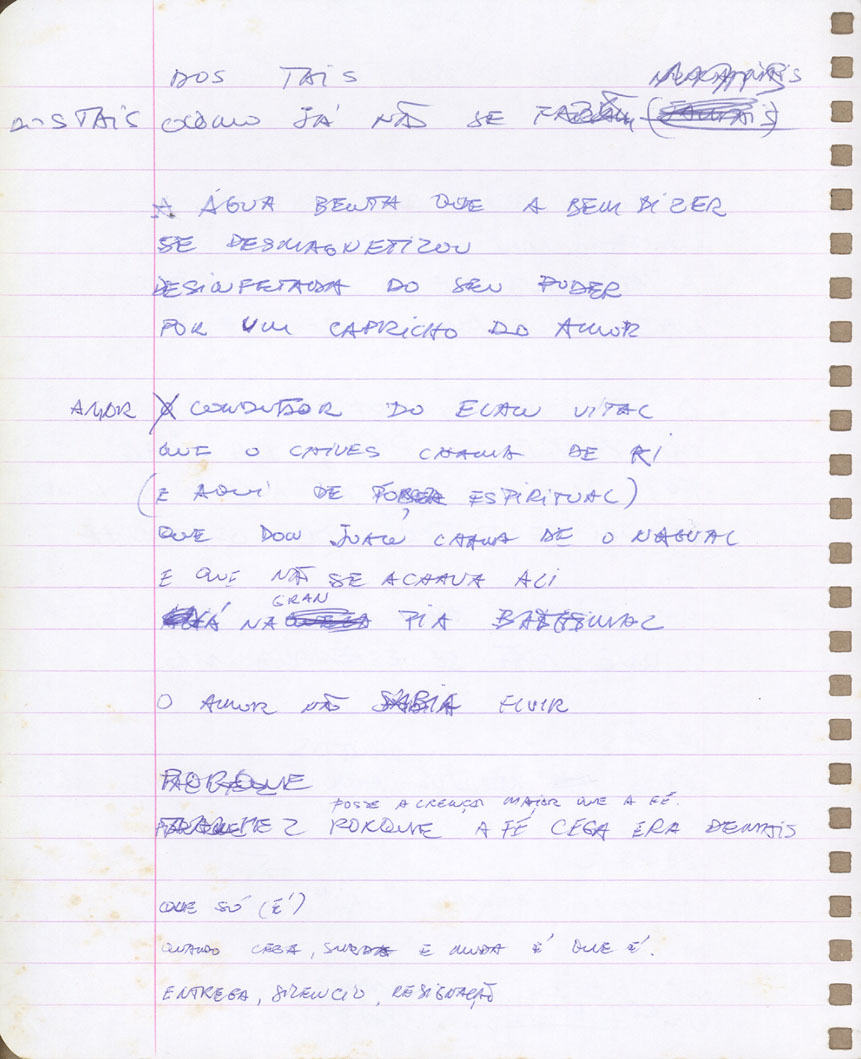 DOS TAIS
DOS TAIS COMO JÁ NÃO SE FAZEM
A ÁGUA BENTA QUE A BEM DIZER
SE DESMAGNETIZOU
DESINFETADA DO SEU PODER
POR UM CAPRICHO DO AMOR
AMOR O CONDUTOR DO ELAN VITAL
QUE O CHINES CHAMA DE KI
(E AQUI DE FORÇA ESPIRITUAL)
QUE DON JUAN CHAMA DE O NAGUAL
E QUE NÃO SE ACHAVA ALI
NA GRAN PIA BATISMAL
O AMOR NÃO SABIA FLUIR
PORQUE
FOSSE A CRENÇA MAIOR QUE A FÉ.
TALVEZ PORQUE A FÉ CEGA ERA DEMAIS
QUE SÓ (É)
QUANDO CEGA, SURDA E MUDA É QUE É.
ENTREGA, SILENCIO, RESIGNAÇÃO